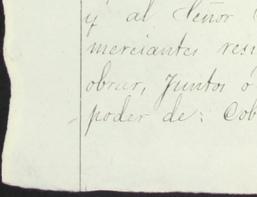 y al Señor
merciantes resi
obrar, Juntos ó
poder de: Cob